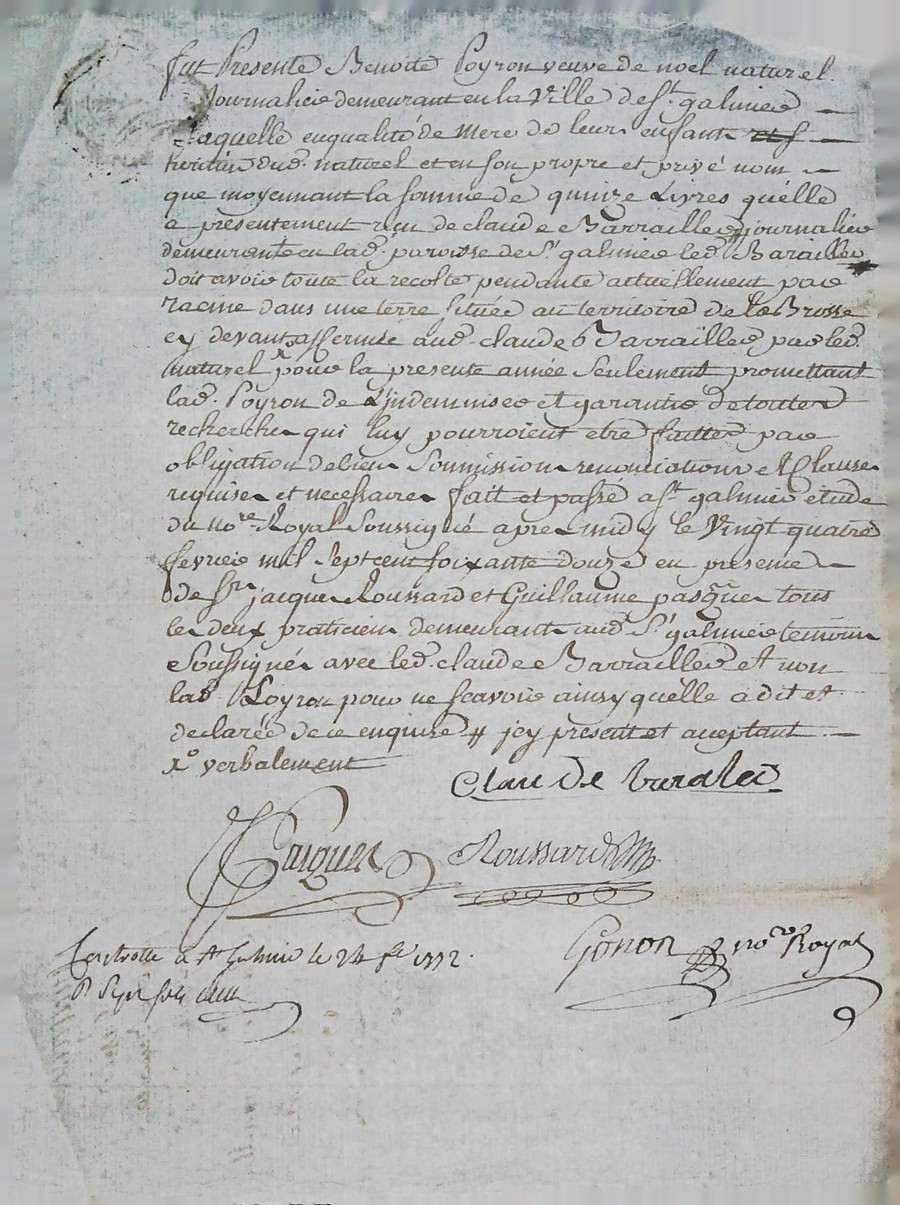 fut Presente Benoite Poyron veuve de noel naturel
Journalier demeurant en la Ville de St. galmier
Laquelle en qualité de Mere de leurs enfants
heritiers dud. naturel et en son propre et privé nom
que moyennant la somme de quinze Livres qu'elle
a presentement reçu de claude Barrailler # journalier
demeurant en lad. paroisse de St. galmier led. Barailler
doit avoir toute la recolte pendante actuellement par
racine dans une terre située au territoire de la Brosse
cy devant affermée aud. claude Barrailler par led.
naturel x pour la presente année Seulement promettant
lad. Poyron de L'indemniser et garantir de toutes
recherches qui luy pourroient etre faittes par
obligation de biens Soumissions renonciations et Clauses
requises et necessaires fait et passé a St. galmier etude
du nore. Royal Soussigné apres midy le Vingt quatre
fevrier mil sept cent soixante douze en presence
de Sr. jacques Roussard et Guillaume pasquer tous
les deux praticiens demeurant aud. St. galmier temoins
Soussignés avec led. claude Barrailler et non
lad. Poyron pour ne scavoir ainsy qu'elle a dit et
declarée de ce enquise # jcy present et aceptant
x verbalement
Clau de baraler
Pasquer Roussard
Gonon nore Royal
Controlle a St Galmier le 24 fe 1772.
R Sept sols